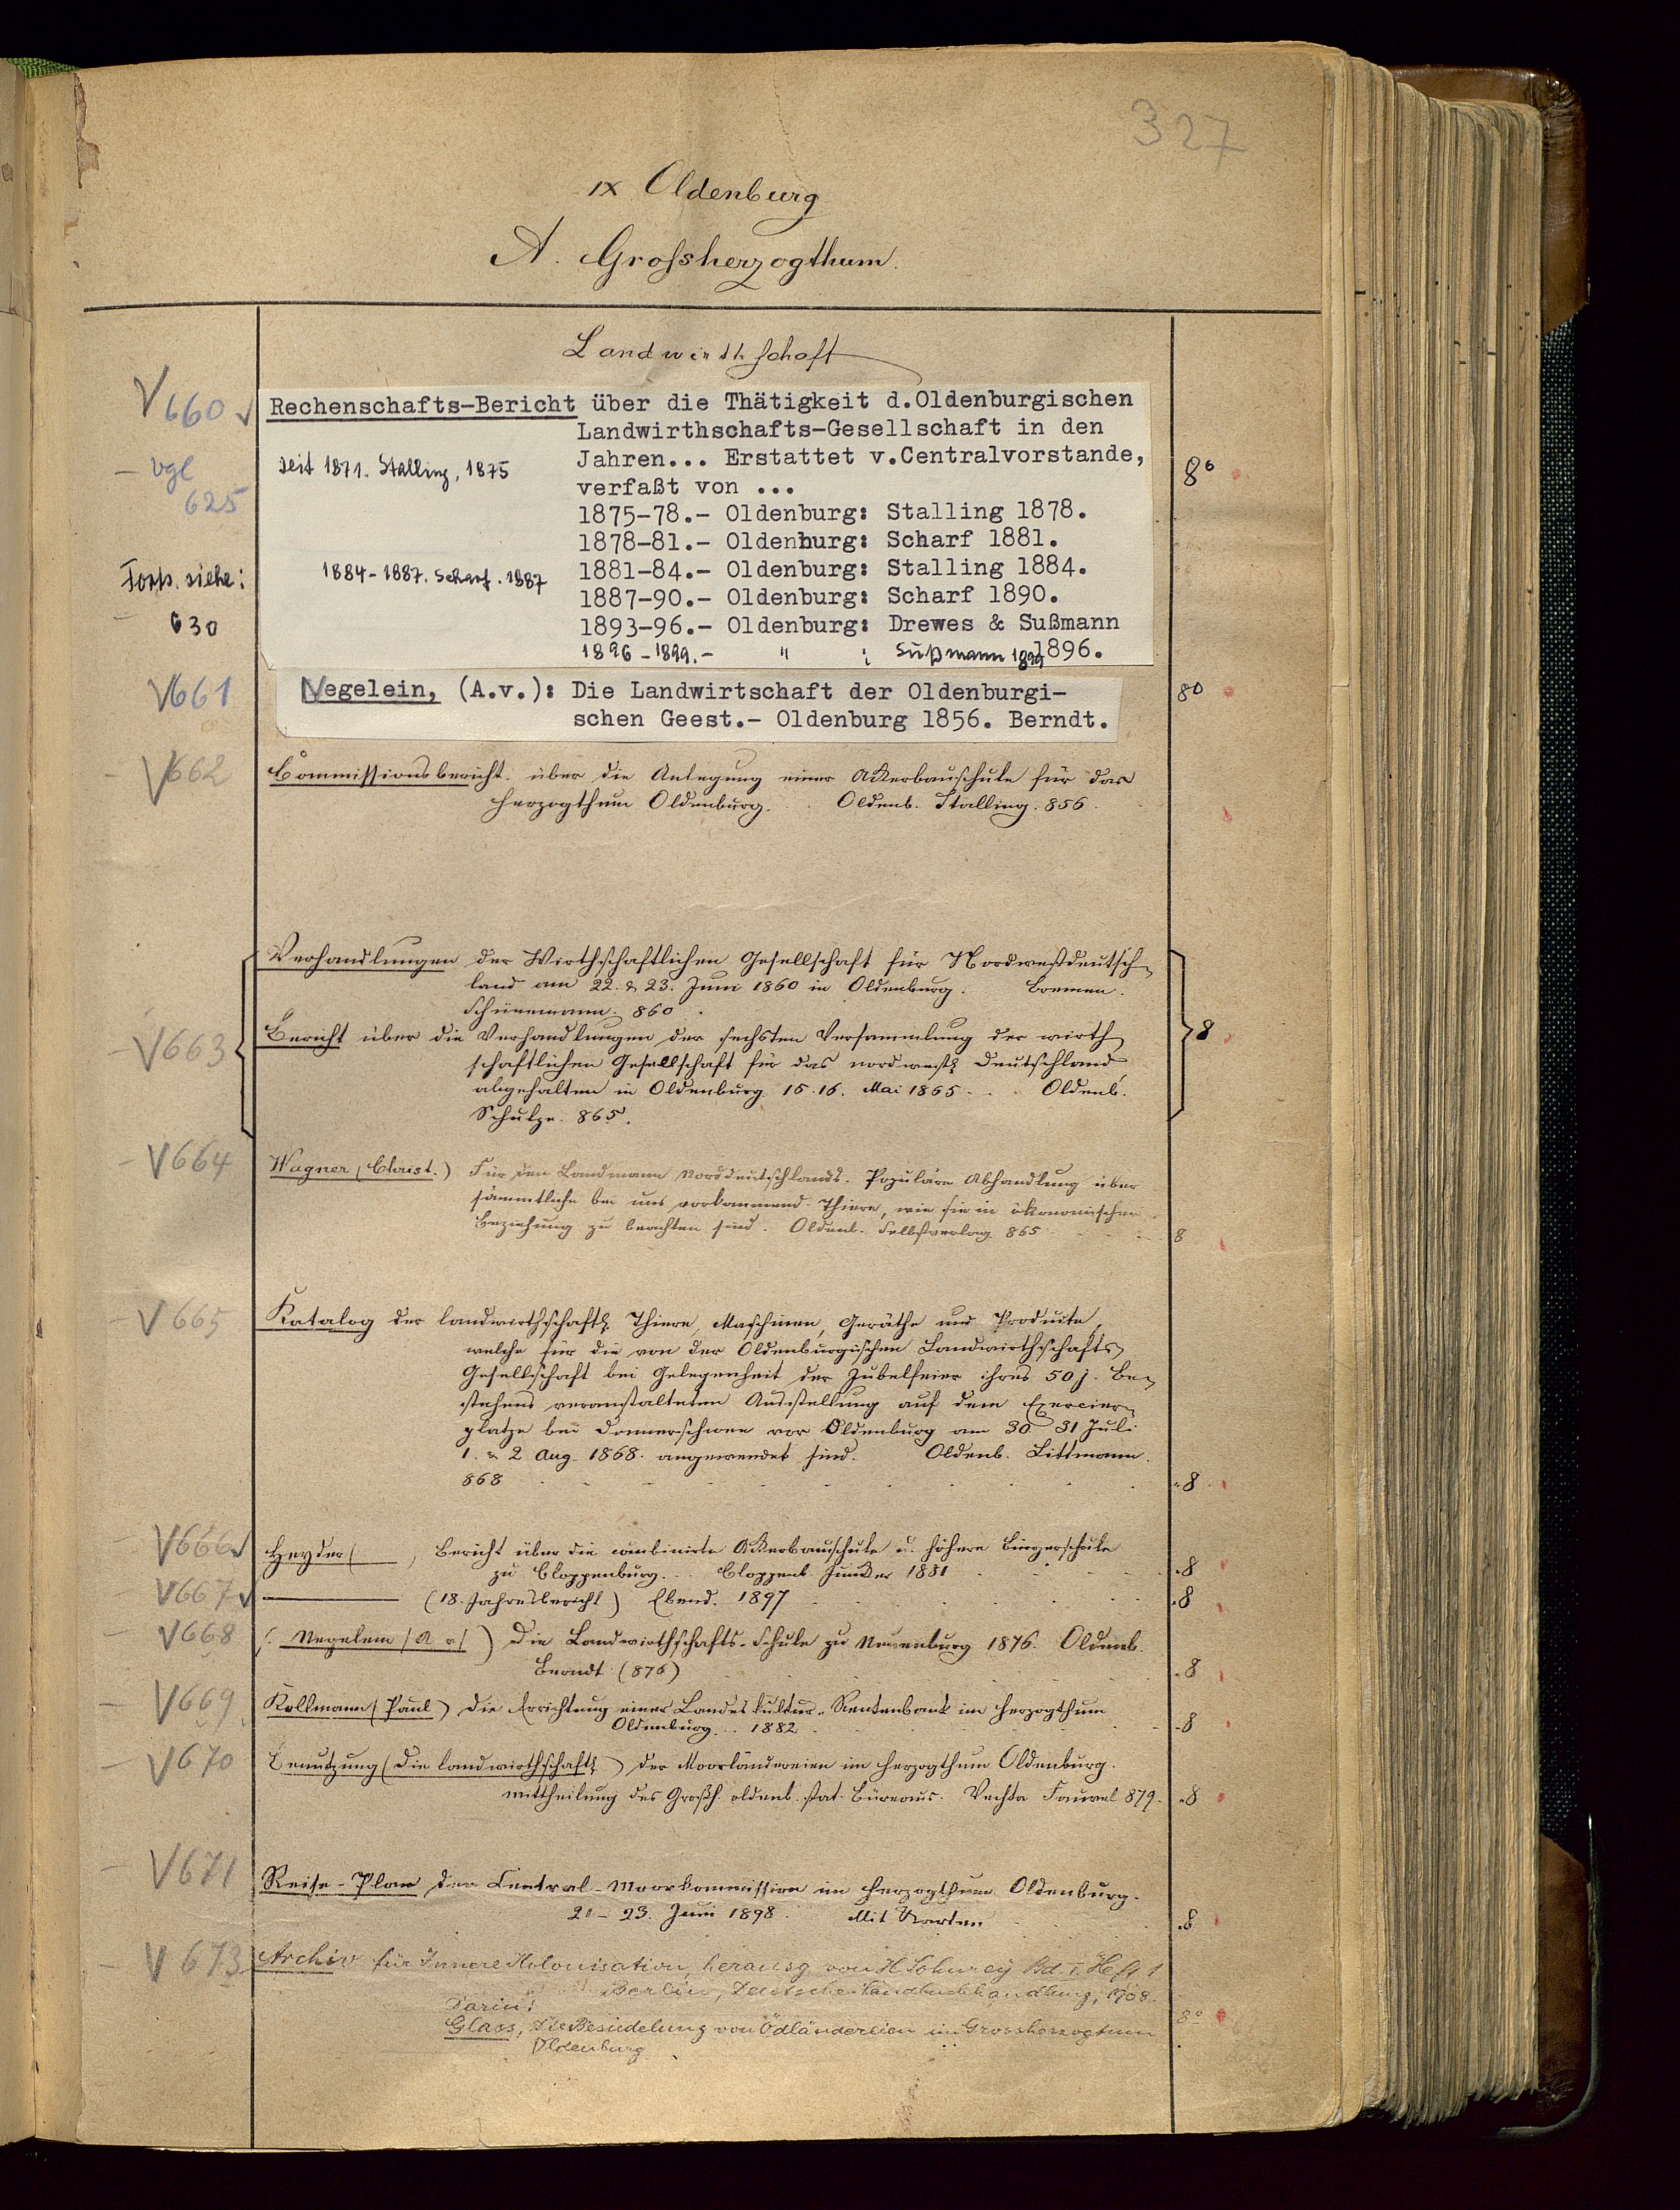 327
IX Oldenburg
A. Grossherzogthum.
Landwirthschaft
V 660 Rechenschafts-Bericht über die Thätigkeit d.Oldenburgischen
Landwirthschafts-Gesellschaft in den
- vgl 625 seit 1871. Stalling, 1875 Jahren... Erstattet v.Centralvorstande, 8°
verfaßt von ...
1875-78.- Oldenburg: Stalling 1878.
1878-81.- Oldenhurg: Scharf 1881.
Forts. siehe: 630 1884-1887. Scharf. 1887 1881-84.- Oldenburg: Stalling 1884.
1887-90.- Oldenburg: Scharf 1890.
1893-96.- Oldenburg: Drewes & Sußmann
1896.
1896-1899.- " : Sußmann 1899
V 661 Negelein, (A.v.): Die Landwirtschaft der Oldenburgi- 8°
schen Geest.- Oldenburg 1856. Berndt.
V 662 Commissionsbericht über die Anlegung einer Ackerbauschule für das
Herzogthum Oldenburg. Oldenb. Stalling. 856
Verhandlungen der Wirthschaftlichen Gesellschaft für Nordwestdeutsch-
land am 22. & 23. Juni 1860 in Oldenburg. Bremen.
Schünemann. 860
- V 663 Bericht über die Verhandlungen der sechsten Versammlung der wirth- 8
schaftlichen Gesellschaft für das nordwestl. Deutschland,
abgehalten in Oldenburg 15. 16. Mai 1865. Oldenb.
Schulze. 865.
- V 664 Wagner (Christ.) Für den Landmann Norddeutschlands. Populäre Abhandlung über
sämmtliche bei uns vorkommend. Thiere, wie sie in ökonomischer
Beziehung zu beachten sind. Oldenb. Selbstverlag 865 8
- V 665 Katalog der landwirthschaftl. Thiere, Maschinen, Geräthe und Produkte,
welche für die von der Oldenburgischen Landwirthschafts-
Gesellschaft bei Gelegenheit der Jubelfeier ihres 50j. Be-
stehens veranstalteten Ausstellung auf dem Exercier-
platze bei Donnerschwee vor Oldenburg am 30. 31 Juli
1. & 2 Aug. 1868. angewendet sind. Oldenb. Littmann.
868 8
- V 666 Heyder ( , Bericht über die combinirte Ackerbauschule u. höhere Bürgerschule
zu Cloppenburg. Cloppenb. Junker 1881 8
V 667 (18. Jahresbericht) Ebend. 1897 8
- V 668 (. Negelein (A v) ) Die Landwirthschafts-Schule zu Neuenburg 1876. Oldenb.
Berndt (876) 8
- V 669 Kollmann (Paul) Die Errichtung einer Landeskultur-Rentenbank im Herzogthum
Oldenburg. 1882 8
- V 670 Benutzung (Die landwirthschaftl.) der Moorländereien im Herzogthum Oldenburg.
Mittheilung des Großh. oldenb. stat. Büreaus. Vechta Fauvel 879. 8
- V 671 Reise-Plan der Central-Moorkommission im Herzogthum Oldenburg.
21-23. Juni 1898. Mit Karten 8
- V 673 Archiv für Innere Kolonisation, herausg von H. Sohnrey Bd. I. Heft 1
Berlin, Deutsche Landbuchhandlung, 1908.
Darin:
Glass, Die Besiedelung von Ödländereien im Grossherzogtum 8°
Oldenburg